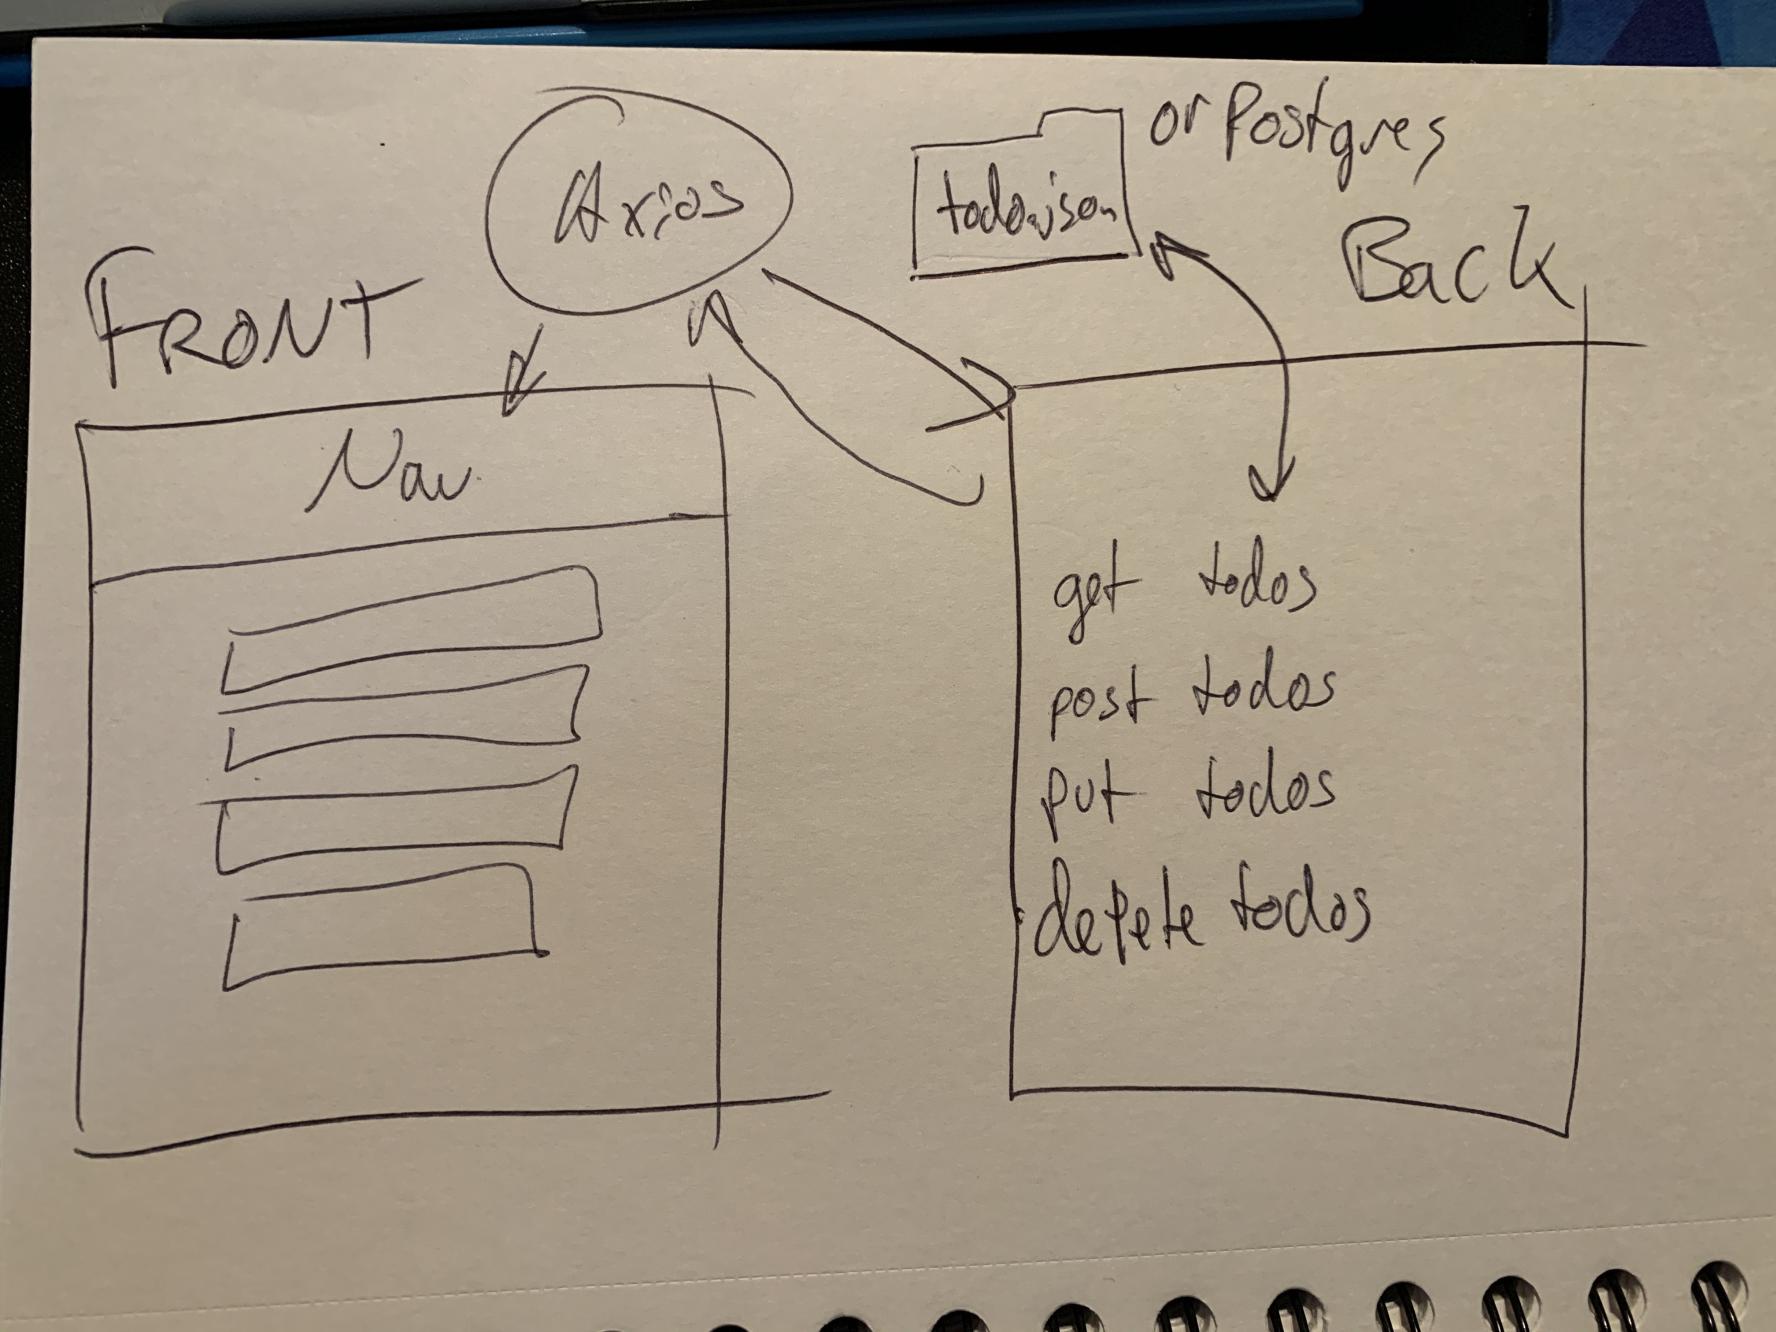 Axios
todo.json
or Postgres
FRONT
Back
Nav
get todos
post todos
put todos
delete todos